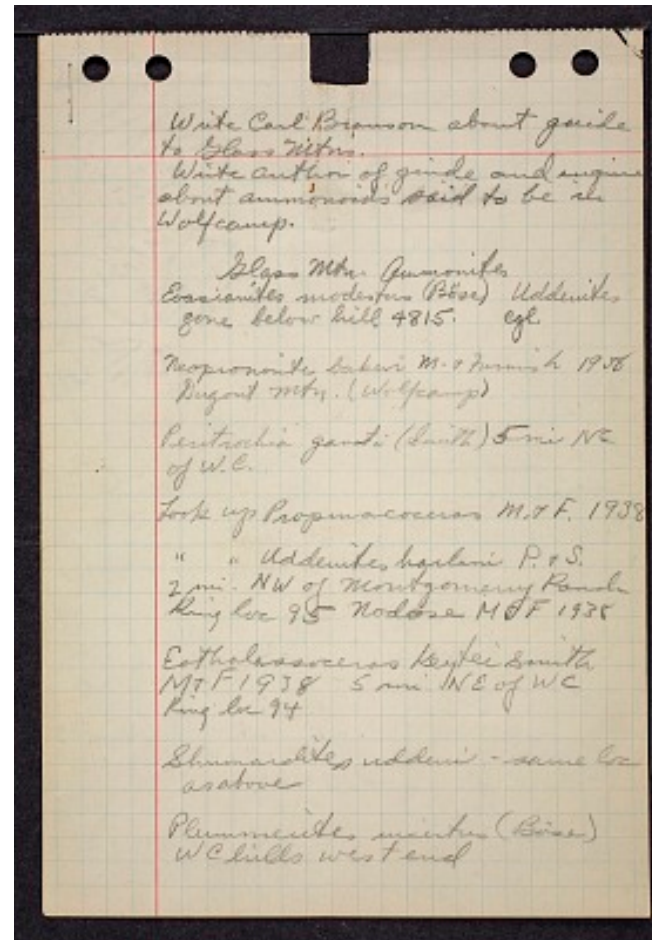 Write Carl Branson about guide
to Glass Mtns.
Write author of guide and inquire
about ammonoids said to be in
Wolfcamp.
Glass Mtn. Ammonites
modestus (Böse) Uddenites
zone below hill 4815. cgl.
bakeri M. & Furnish 1938
Dugout Mtn. (Wolfcamp)
Peritrochia (Smith) 5 mi NE
of W.C.
Look up Propinacoceras M. & F. 1938
" " Uddenites harlani P. & S.
2 mi. NW of Montgomery Ranch
King loc 95 Nodose M & F 1938
Eothalassoceras Smith
M & F 1938 5 mi. NE of WC
King loc 94
Shumardites uddeni - same loc
as above
Plummerites (Böse)
WC hills west end